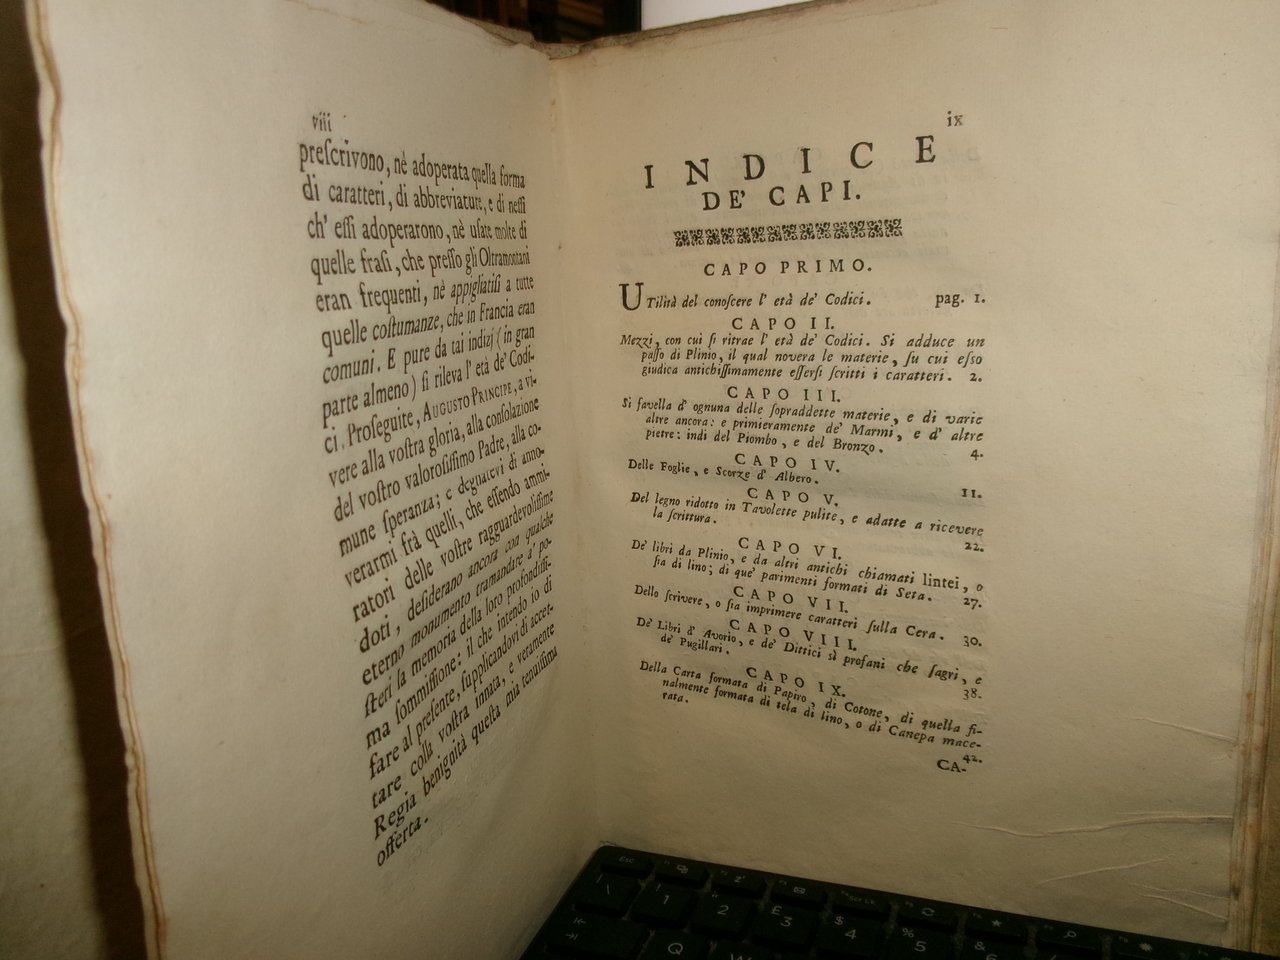 viii
preſcrivono, nè adoperata quella forma
di caratteri, di abbreviature, e di neſſi
ch' eſſi adoperarono, nè uſate molte di
quelle fraſi, che preſſo gli Oltramontani
eran frequenti, nè appigliatiſi a tutte
quelle coſtumanze, che in Francia eran
comuni. E pure da tai indizj (in gran
parte almeno) ſi rileva l' età de' Codi-
ci. Proſeguite, AUGUSTO PRINCIPE, a vi-
vere alla voſtra gloria, alla conſolazione
del voſtro valoroſiſſimo Padre, alla co-
mune ſperanza; e degnatevi di anno-
verarmi frà quelli, che eſſendo ammi-
ratori delle voſtre ragguardevoliſſime
doti, deſiderano ancora con qualche
eterno monumento tramandare a' po-
ſteri la memoria della loro profondiſſi-
ma ſommiſſione: il che intendo io di
fare al preſente, ſupplicandovi di accet-
tare colla voſtra innata, e veramente
Regia benignità queſta mia tenuiſſima
offerta.
ix
INDICE
DE' CAPI.
CAPO PRIMO.
UTilità del conoſcere l' età de' Codici. pag. 1.
CAPO II.
Mezzi, con cui ſi ritrae l' età de' Codici. Si adduce un
paſſo di Plinio, il qual novera le materie, ſu cui eſſo
giudica antichiſſimamente eſſerſi ſcritti i caratteri. 2.
CAPO III.
Si favella d' ognuna delle ſopraddette materie, e di varie
altre ancora: e primieramente de' Marmi, e d' altre
pietre: indi del Piombo, e del Bronzo. 4.
CAPO IV.
Delle Foglie, e Scorze d' Albero. 11.
CAPO V.
Del legno ridotto in Tavolette pulite, e adatte a ricevere
la ſcrittura. 22.
CAPO VI.
De' libri da Plinio, e da altri antichi chiamati lintei, o
ſia di lino; di que' parimenti formati di Seta. 27.
CAPO VII.
Dello ſcrivere, o ſia imprimere caratteri ſulla Cera. 30.
CAPO VIII.
De' Libri d' Avorio, e de' Dittici sì profani che ſagri, e
de' Pugillari. 38.
CAPO IX.
Della Carta formata di Papiro, di Cotone, di quella fi-
nalmente formata di tela di lino, o di Canepa mace-
rata. 42.
CA-
Esc
\ 1 2 £ 3 $ 4 % 5 & 6
Q